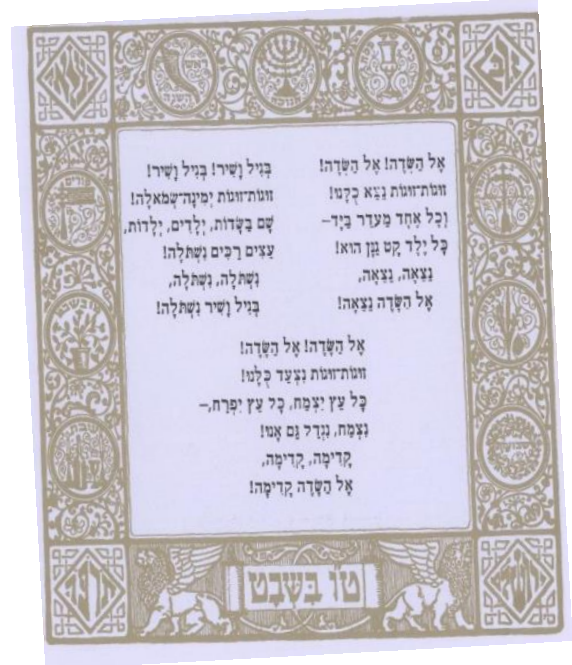 אֶל הַשָּׂדֶה! אֶל הַשָּׂדֶה!
זוּגוֹת־זוּגוֹת נֵצֵא כֻּלָּנוּ!
וְכָל אֶחָד מַעְדֵּר בַּיָּד–
כָּל יֶלֶד קָט גַּנָּן הוּא!
נֵצֵאָה, נֵצֵאָה,
אֶל הַשָּׂדֶה נֵצֵאָה!
בְּגִיל וָשִׁיר! בְּגִיל וָשִׁיר!
זוּגוֹת־זוּגוֹת יְמִינָה־שְׂמֹאלָה!
שָׁם בַּשָּׂדוֹת, יְלָדִים, יְלָדוֹת,
עֵצִים רַכִּים נִשְׁתֹּלָה!
נִשְׁתֹּלָה, נִשְׁתֹּלָה,
בְּגִיל וָשִׁיר נִשְׁתֹּלָה!
אֶל הַשָּׂדֶה! אֶל הַשָּׂדֶה!
זוּגוֹת־זוּגוֹת נִצְעַד כֻּלָּנוּ!
כָּל עֵץ יִצְמַח, כָּל עֵץ יִפְרַח,–
נִצְמַח, נִגְדַּל גַּם אָנוּ!
קָדִימָה, קָדִימָה,
אֶל הַשָּׂדֶה קָדִימָה!
ט״ו בִּשְׁבָט